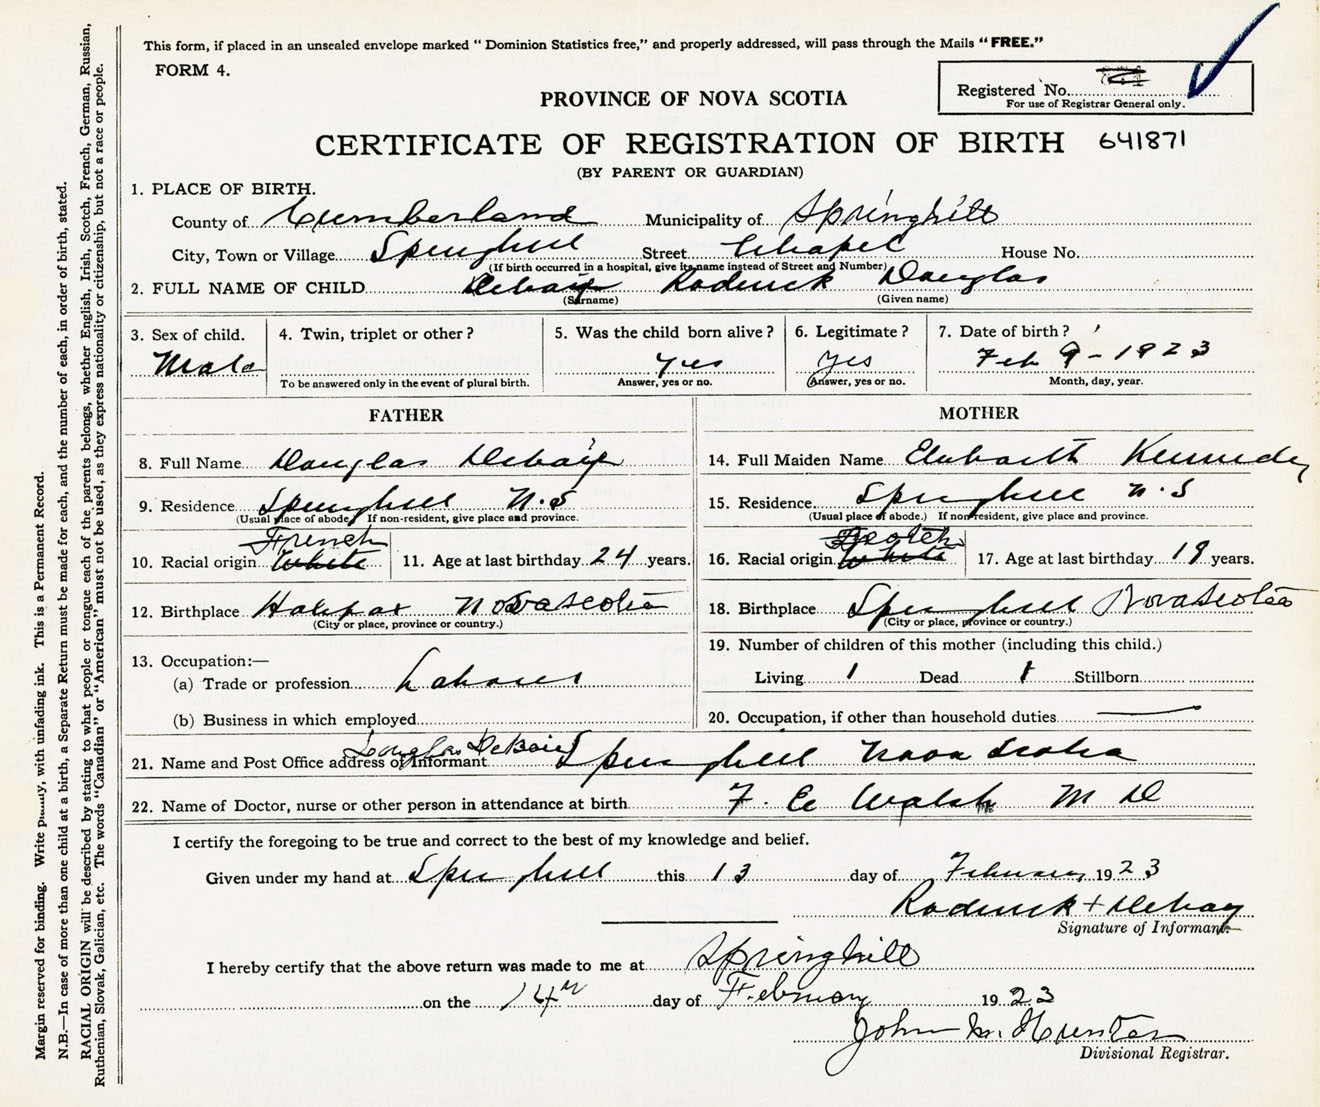 This form, if placed in an unsealed envelope marked "Dominion Statistics free," and properly addressed, will pass through the Mails "FREE."
FORM 4.
Registered No.
For use of Registrar General only.
PROVINCE OF NOVA SCOTIA
CERTIFICATE OF REGISTRATION OF BIRTH 641871
(BY PARENT OR GUARDIAN)
1. PLACE OF BIRTH.
County of Cumberland Municipality of Springhill
City, Town or Village Springhill Street Chapel House No.
(If birth occurred in a hospital, give its name instead of Street and Number)
2. FULL NAME OF CHILD Debaiy Roderick Douglas
(Surname) (Given name)
3. Sex of child. 4. Twin, triplet or other? 5. Was the child born alive? 6. Legitimate? 7. Date of birth?
Male yes yes Feb 9 - 1923
To be answered only in the event of plural birth. Answer, yes or no. Answer, yes or no. Month, day, year.
FATHER MOTHER
8. Full Name Douglas Debaiy 14. Full Maiden Name Elizabeth Kennedy
9. Residence Springhill N.S 15. Residence Springhill N.S
(Usual place of abode. If non-resident, give place and province. (Usual place of abode.) If non-resident, give place and province.
French Scotch
10. Racial origin White 11. Age at last birthday 24 years. 16. Racial origin White 17. Age at last birthday 19 years.
12. Birthplace Halifax Nova Scotia 18. Birthplace Springhill Nova Scotia
(City or place, province or country.) (City or place, province or country.)
19. Number of children of this mother (including this child.)
13. Occupation:—
(a) Trade or profession Labourer Living 1 Dead 1 Stillborn
(b) Business in which employed 20. Occupation, if other than household duties
Douglas DeBaie
21. Name and Post Office address of Informant Springhill Nova Scotia
22. Name of Doctor, nurse or other person in attendance at birth F. E Walsh M D
I certify the foregoing to be true and correct to the best of my knowledge and belief.
Given under my hand at Springhill this 13 day of February 1923
Roderick + Debay
Signature of Informant.
I hereby certify that the above return was made to me at Springhill
on the 14th day of February 1923
John M. Hunter
Divisional Registrar.
Margin reserved for binding. Write with unfading ink. This is a Permanent Record.
N.B.—In case of more than one child at a birth, a Separate Return must be made for each, and the number of each, in order of birth, stated.
RACIAL ORIGIN will be described by stating to what people or tongue each of the parents belongs, whether English, Irish, Scotch, French, German, Russian,
Ruthenian, Slovak, Galician, etc. The words "Canadian" or "American" must not be used, as they express nationality or citizenship, but not a race or people.